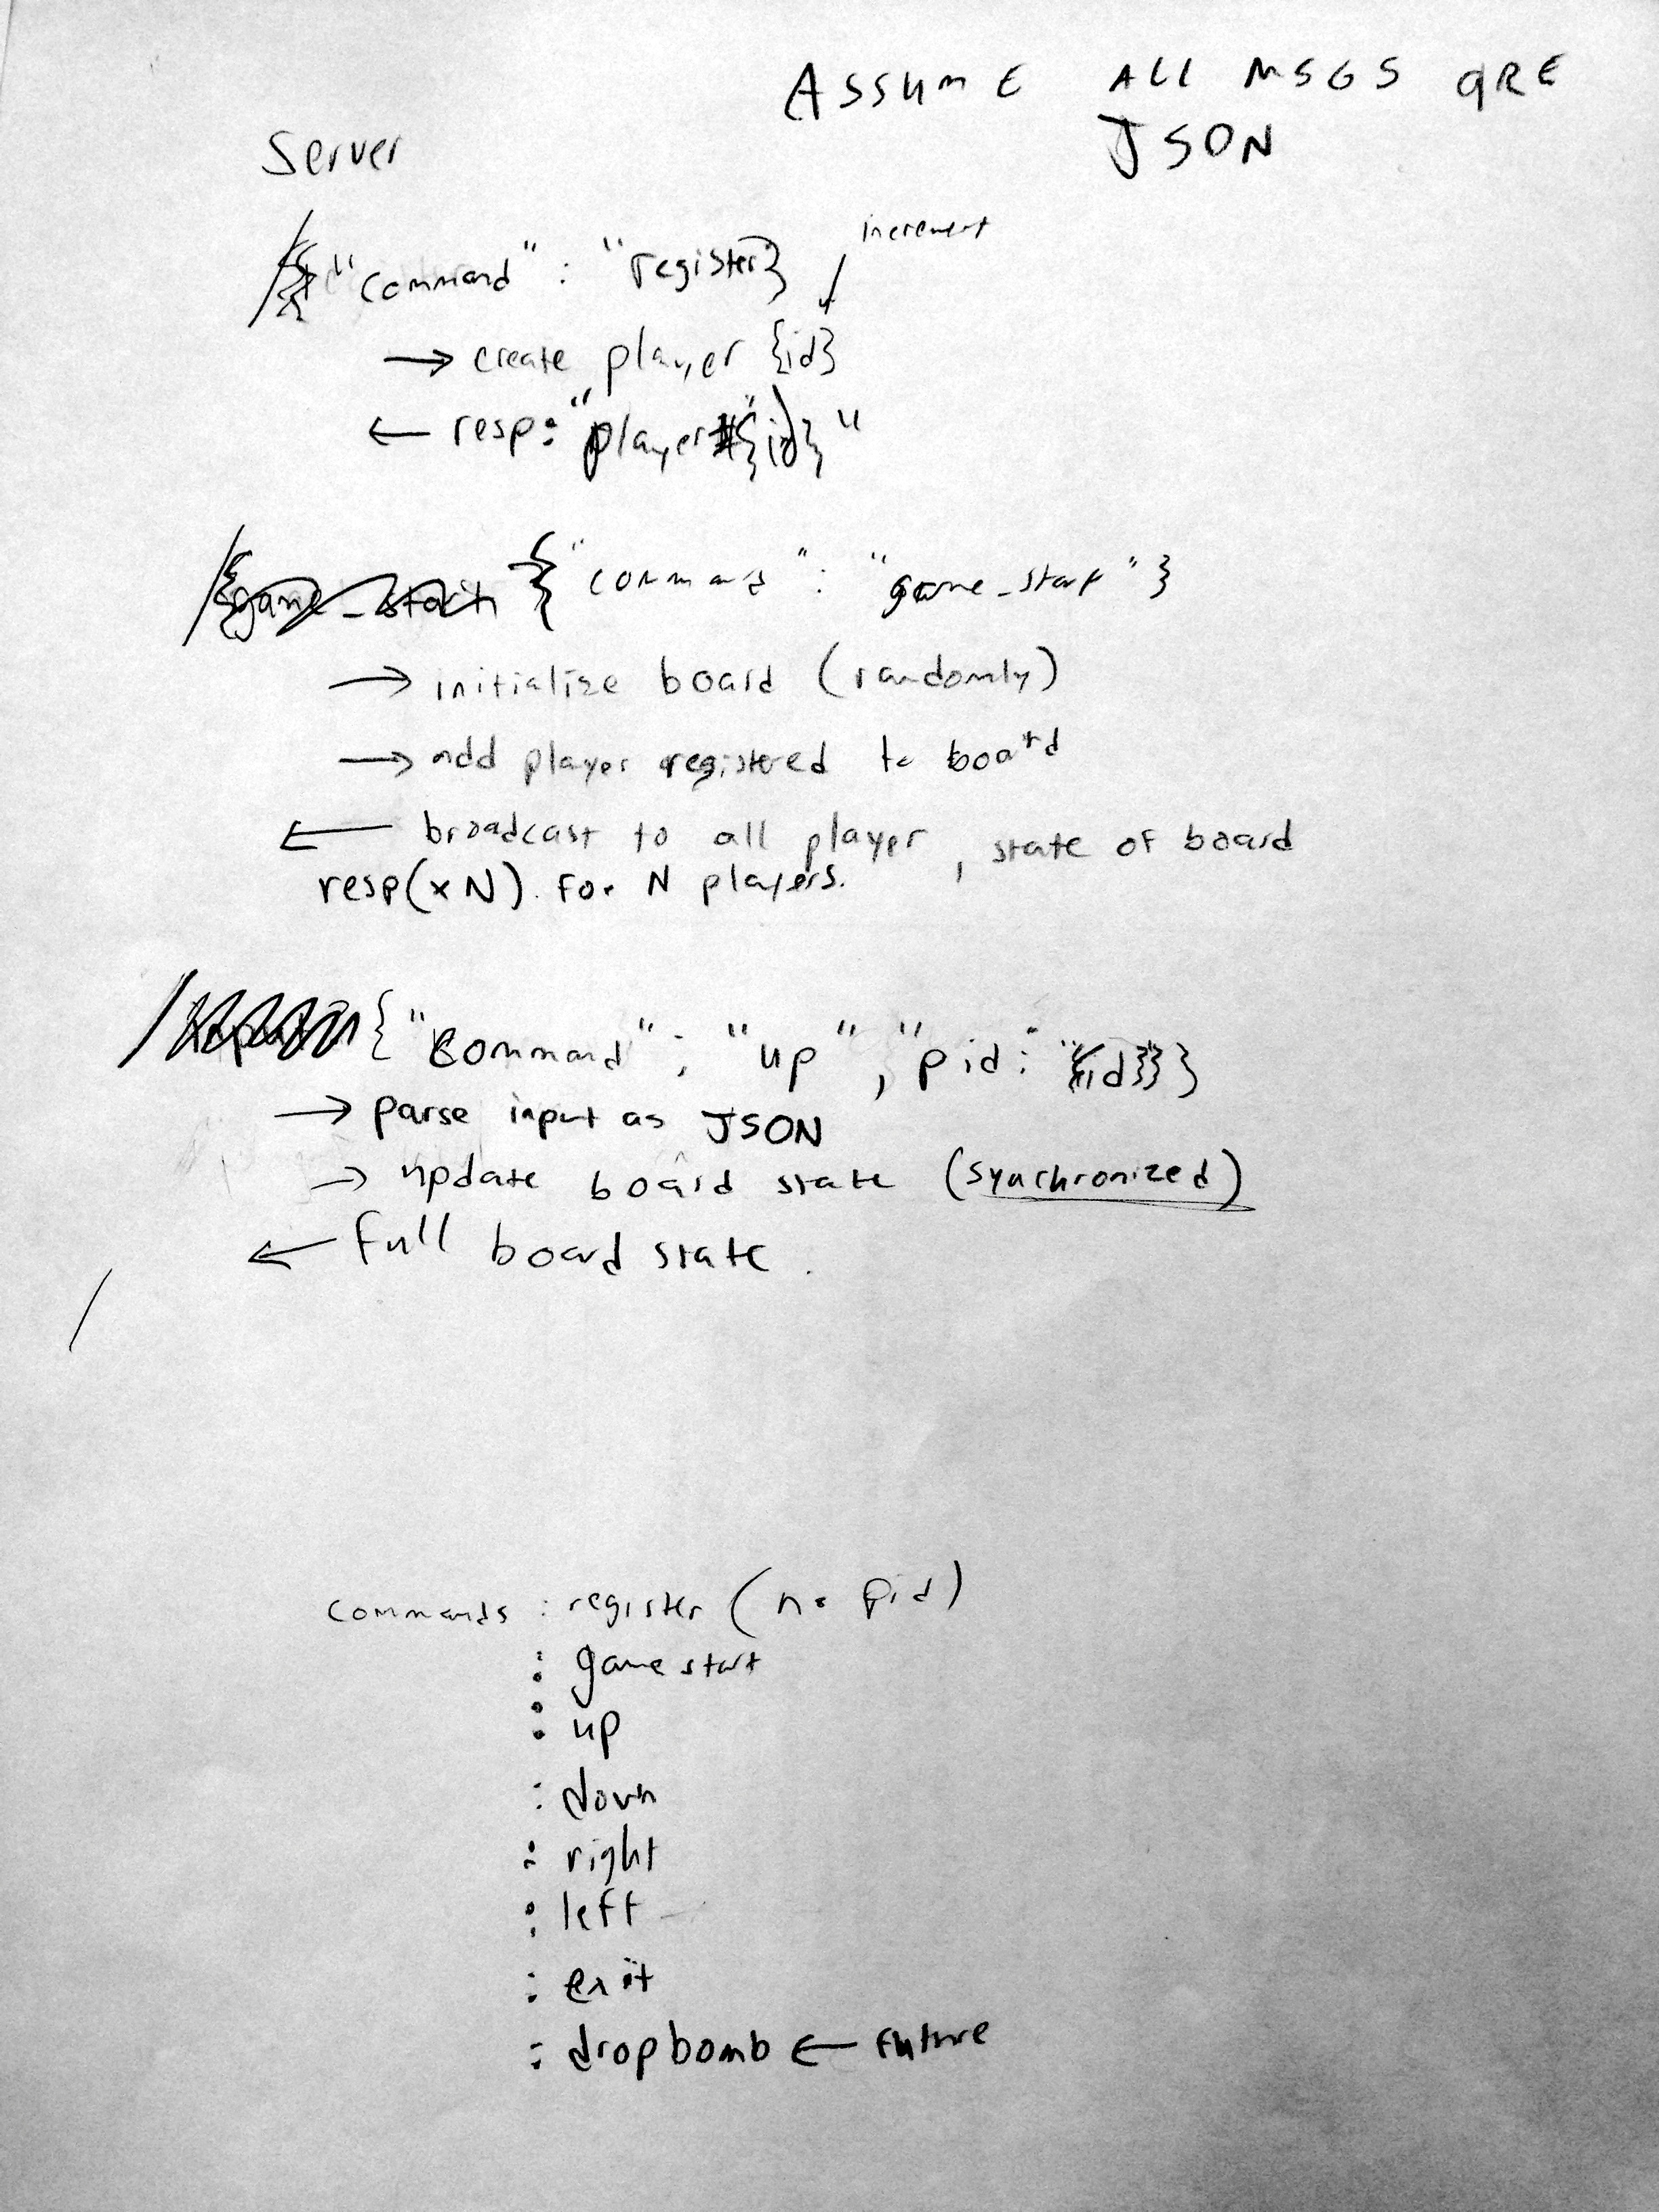 ASSUME ALL MSGS ARE
JSON
Server
increment
/{ "command" : "register}
→ create player {id}
← resp: "player#{id}"
/{game_start {"command" : "game_start"}
→ initialize board (randomly)
→ add player registered to board
← broadcast to all player, state of board
resp(x N). For N players.
/ {"command" : "up", "pid: "{id}"}
→ parse input as JSON
→ update board state (synchronized)
← full board state.
/
commands : register (no pid)
: game start
: up
: down
: right
: left
: exit
: drop bomb ← future